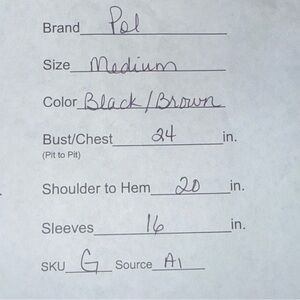 Brand Pol
Size Medium
Color Black/Brown
Bust/Chest 24 in.
(Pit to Pit)
Shoulder to Hem 20 in.
Sleeves 16 in.
SKU G Source A1